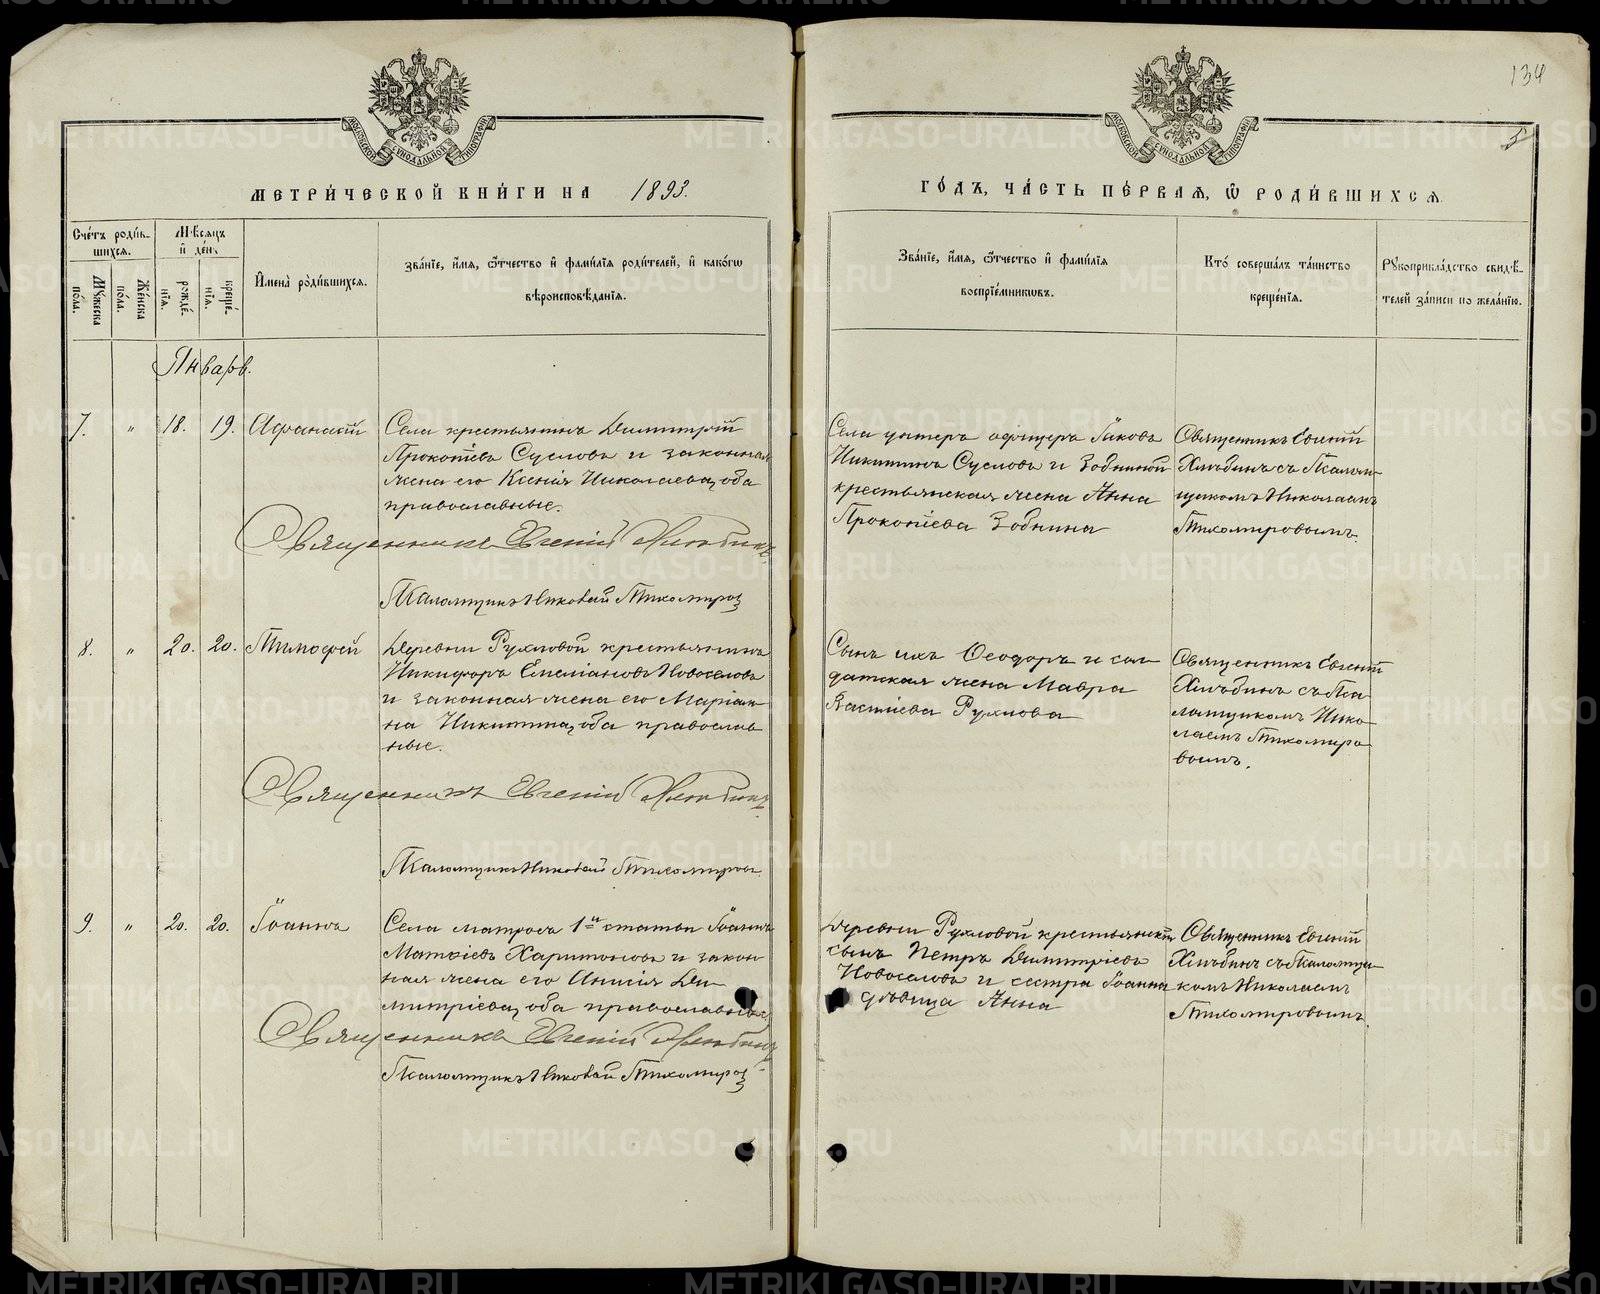 134
5
МОСКОВСКОЙ СѴНОДАЛЬНОЙ ТИПОГРАФІИ
МОСКОВСКОЙ СѴНОДАЛЬНОЙ ТИПОГРАФІИ
МЕТРИ́ЧЕСКОЙ КНИ́ГИ НА 1893.
ГО́ДЪ, ЧА́СТЬ ПЕ́РВАѦ, Ѿ РОДИ́ВШИХСѦ
Сче́тъ роди́вшихсѧ.
Мꙋжеска по́ла.
Же́нска по́ла.
Мѣсѧцъ и҆ де́нь
рожде́нїѧ.
креще́нїѧ.
И҆мена̀ роди́вшихсѧ.
Зва́нїе, и҆́мѧ, ѻ҆́тчество и҆ фами́лїѧ роди́телей, и҆ како́гѡ
вѣроисповѣ́данїѧ.
Зва́нїе, и҆́мѧ, ѻ҆́тчество и҆ фами́лїѧ
воспрїе́мникѡвъ.
Кто̀ соверша́лъ та́инство
креще́нїѧ.
Рꙋкоприкла́дство свидѣ́-
телей за́писи по жела́нїю.
Январь.
7. " 18. 19. Аѳанасій
Села крестьянинъ Димитрій
Прокопіевъ Сусловъ и законная
жена его Ксенія Николаева, оба
православные.
Священникъ Евгеній Хлѣбинъ
Псаломщикъ Николай Тихомировъ
Села унтеръ офицеръ Іаковъ
Никитинъ Сусловъ и Зобниной
крестьянская жена Анна
Прокопіева Зобнина
Священникъ Евгеній
Хлѣбинъ съ Псалом-
щикомъ Николаемъ
Тихомировымъ.
8. " 20. 20. Тимофей
Деревни Рухловой крестьянинъ
Никифоръ Емеліановъ Новоселовъ
и законная жена его Маріан-
на Никитина, оба православ
ные.
Священникъ Евгеній Хлѣбинъ
Псаломщикъ Николай Тихомировъ
Сынъ ихъ Ѳеодоръ и сол-
датская жена Мавра
Василіева Рухлова
Священникъ Евгеній
Хлѣбинъ съ Пса-
ломщикомъ Нико-
лаемъ Тихомиро
вымъ.
9. " 20. 20. Іоаннъ
Села матросъ 1й статьи Іоаннъ
Матѳіевъ Харитоновъ и закон-
ная жена его Анисія Ди-
митріева, оба православные
Священникъ Евгеній Хлѣбинъ
Псаломщикъ Николай Тихомировъ
Деревни Рухловой крестьянскій
сынъ Петръ Димитріевъ
Новоселовъ и сестра Іоанна
дѣвица Анна
Священникъ Евгеній
Хлѣбинъ съ Псаломщи-
комъ Николаемъ
Тихомировымъ.
METRIKI.GASO-URAL.RU